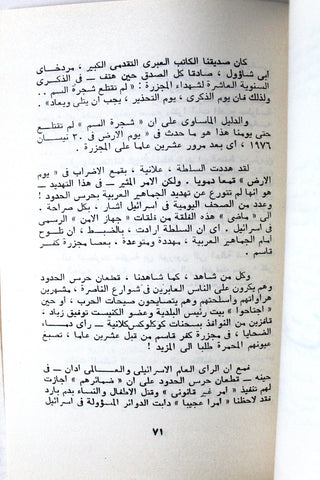 كان صديقنا الكاتب العبرى التقدمى الكبير ، مردخاى
ابى شاؤول ، صادقا كل الصدق حين هتف ــ فى الذكرى
السنوية العاشرة لشهداء المجزرة : « لم تقتلع شجرة السم ..
ولذلك فان يوم الذكرى ، يوم التحذير ، يجب ان يتلى ويعاد » .
والدليل المأساوى على ان « شجرة السم » لم تقتلع
حتى يومنا هذا هو ما حدث فى « يوم الارض فى ٣٠ نيسان
١٩٧٦ ، اى بعد مرور عشرين عاما على المجزرة .
لقد هددت السلطة ، علانية ، بقمع الاضراب فى « يوم
الارض » قمعا دمويا . ولكن الامر المثير ــ فى هذا التهديد ــ
هو انها لم تتورع عن تهديد الجماهير العربية بحرس الحدود !
وعدد من الصحف اليومية فى اسرائيل اشار ، بكل صراحة .
الى « ماضى » هذه الفلقة من فلقات « جهاز الامن » الرسمى
فى اسرائيل . اى ان السلطة ارادت ، بالضبط ، ان تلوح
امام الجماهير العربية ، مهددة ومتوعدة ، بعصا مجزرة كفر
قاسم .
وكل من شاهد ، كما شاهدنا ، قطعان حرس الحدود
وهم يكرون على الناس العابرين فى شوارع الناصرة ، مشهرين
هراواتهم واسلحتهم وهم يتصايحون صيحات الحرب ، او حين
« اجتاحوا » بيت رئيس البلدية وعضو الكنيست توفيق زياد ،
قافزين من النوافذ بسحنات كوكلوكسكلانية ــ رأى دماء
الشهداء ، فى مجزرة كفر قاسم من قبل عشرين عاما ، تصبغ
عيونهم المحمرة طلبا الى المزيد !
فمع ان الراى العام الاسرائيلى والعالمى ادان ــ فى
حينه ــ قطعان حرس الحدود على ان « ضمائرهم » اجازت
لهم تنفيذ « امر غير قانونى » وقتل الاطفال والنساء بدم بارد
نقد لاحظنا « امرا عجيبا » دابت الدوائر المسؤولة فى اسرائيل
٧١